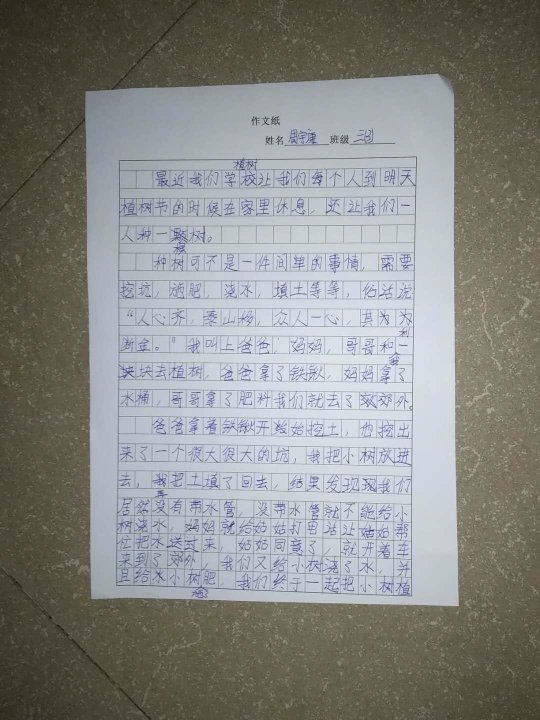 作文纸
姓名 周宇康 班级 三(3)
植树
最近我们学校让我们每个人到明天
植树节的时候在家里休息，还让我们一
人种一颗树。
棵
种树可不是一件间单的事情，需要
挖坑，施肥，浇水，填土等等，俗话说
“人心齐，泰山移，众人一心，其为为
利
断金。”我叫上爸爸，妈妈，哥哥和一
我
块块去植树，爸爸拿了铁锹，妈妈拿了
水桶，哥哥拿了肥料我们就去了郊外。
爸爸拿着铁锹开始始挖土，他挖出
来了一个很大很大的坑，我把小树放进
去，我把土填了回去，结果发现现我们
再
居然没有带水管，没带水管就不能给小
树浇水，妈妈就给姑姑打电话让姑姑帮
位把水送过来，姑姑同意了，就开着车
来到了郊外，我们又给小树浇了水，并
且给小树肥，我们终于一起把小树植
施